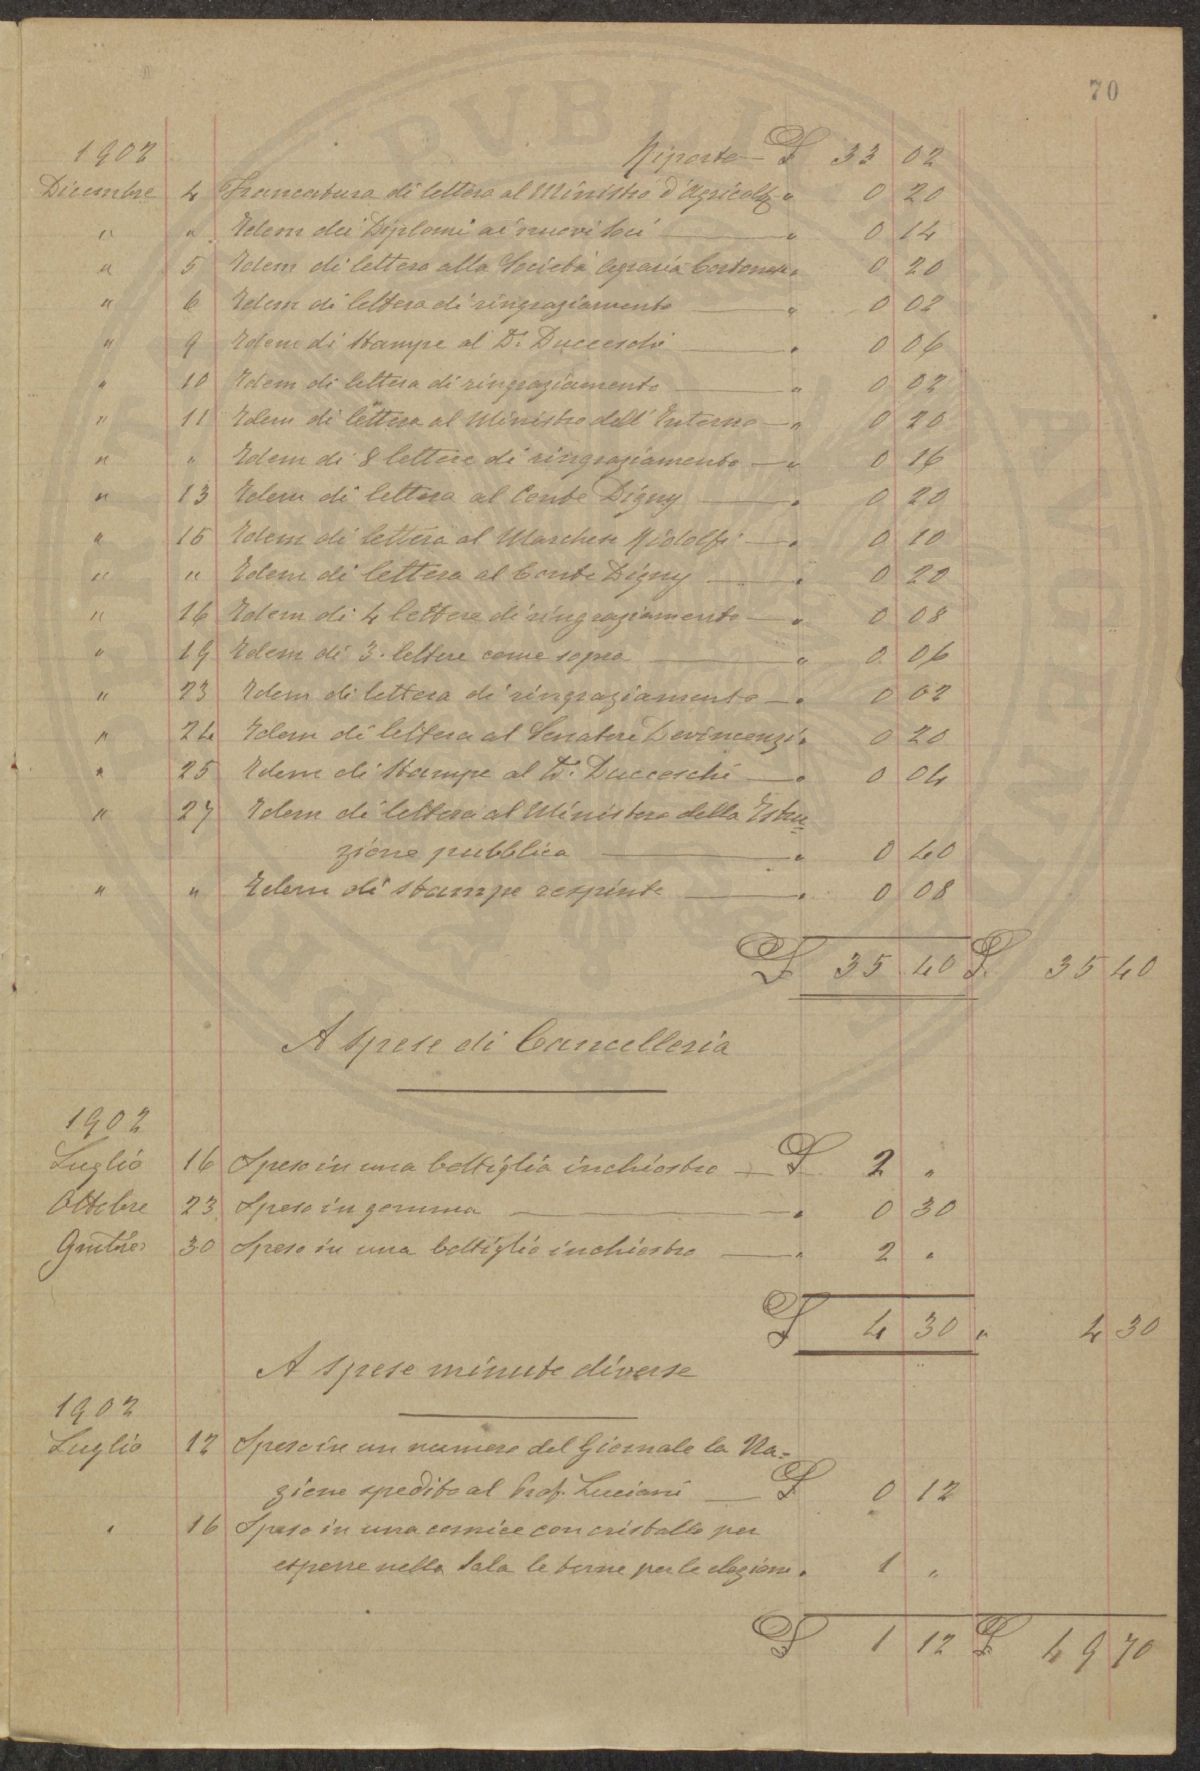 70
1902 Riporto £ 33 02
Dicembre 4 Francatura di lettera al Ministro d'Agricolt. " 0 20
" " Idem dei Diplomi ai nuovi soci " 0 14
" 5 Idem di lettera alla Società Agraria Cortonese " 0 20
" 6 Idem di lettera di ringraziamento " 0 02
" 9 Idem di stampe al Dr. Ducceschi " 0 06
" 10 Idem di lettera di ringraziamento " 0 02
" 11 Idem di lettera al Ministro dell'Interno " 0 20
" " Idem di 8 lettere di ringraziamento " 0 16
" 13 Idem di lettera al Conte Digny " 0 20
" 15 Idem di lettera al Marchese Ridolfi " 0 10
" " Idem di lettera al Conte Digny " 0 20
" 16 Idem di 4 lettere di ringraziamento " 0 08
" 19 Idem di 3 lettere come sopra " 0 06
" 23 Idem di lettera di ringraziamento " 0 02
" 24 Idem di lettera al Senatore Devincenzi " 0 20
" 25 Idem di stampe al Dr. Ducceschi " 0 04
" 27 Idem di lettera al Ministero della Istru=
zione pubblica " 0 40
" " Idem di stampe respinte " 0 08
£ 35 40 £ 35 40
A spese di Cancelleria
1902
Luglio 16 Speso in una bottiglia inchiostro £ 2 "
Ottobre 23 Speso in gomma " 0 30
30 Speso in una bottiglia inchiostro " 2 "
£ 4 30 " 4 30
A spese minute diverse
1902
Luglio 12 Speso in un numero del Giornale la Na=
zione spedito al Prof. Luciani £ 0 12
" 16 Speso in una cornice con cristallo per
esporre nella Sala le terne per le elezioni " 1 "
£ 1 12 £ 49 70